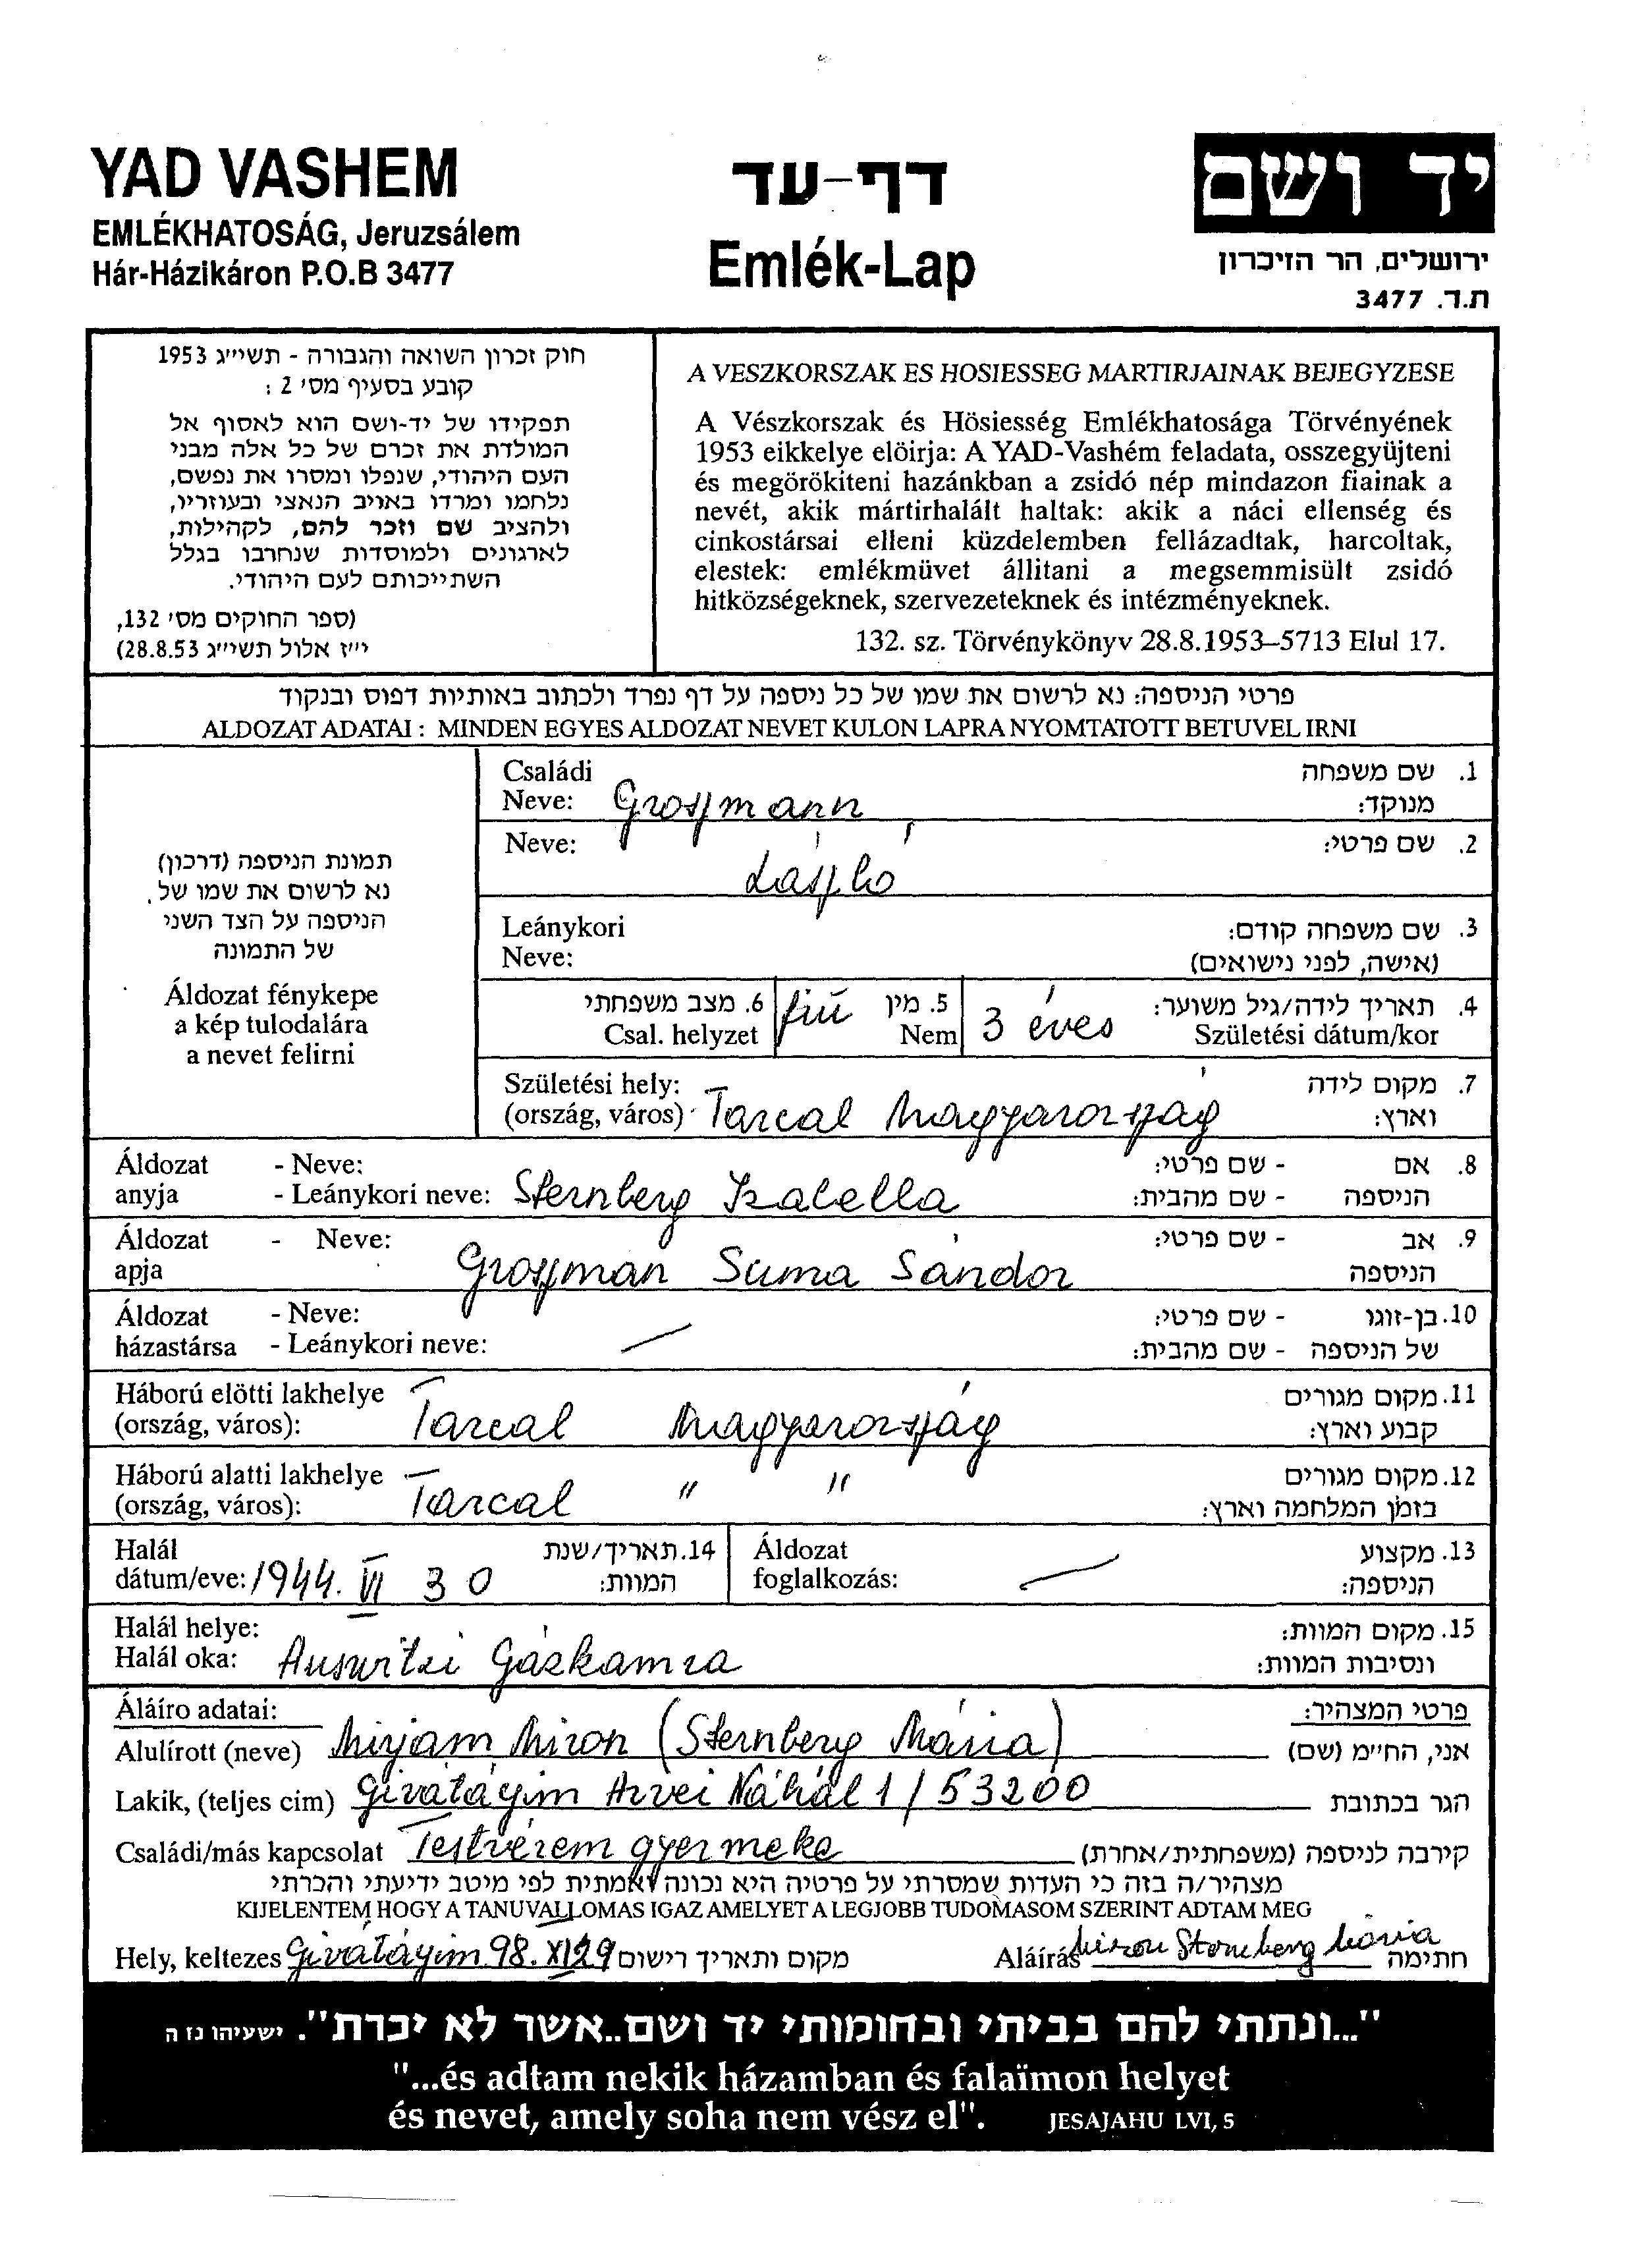 YAD VASHEM
EMLÉKHATOSÁG, Jeruzsálem
Hár-Házikáron P.O.B 3477
דף-עד
Emlék-Lap
יד ושם
ירושלים, הר הזיכרון
ת.ד. 3477
חוק זכרון השואה והגבורה - תשי״ג 1953
קובע בסעיף מס׳ 2 :
תפקידו של יד-ושם הוא לאסוף אל
המולדת את זכרם של כל אלה מבני
העם היהודי, שנפלו ומסרו את נפשם,
נלחמו ומרדו באויב הנאצי ובעוזריו,
ולהציב שם וזכר להם, לקהילות,
לארגונים ולמוסדות שנחרבו בגלל
השתייכותם לעם היהודי.
(ספר החוקים מס׳ 132,
י״ז אלול תשי״ג 28.8.53)
A VESZKORSZAK ES HOSIESSEG MARTIRJAINAK BEJEGYZESE
A Vészkorszak és Hösiesség Emlékhatosága Törvényének
1953 eikkelye elöirja: A YAD-Vashém feladata, osszegyüjteni
és megörökiteni hazánkban a zsidó nép mindazon fiainak a
nevét, akik mártirhalált haltak: akik a náci ellenség és
cinkostársai elleni küzdelemben fellázadtak, harcoltak,
elestek: emlékmüvet állitani a megsemmisült zsidó
hitközségeknek, szervezeteknek és intézményeknek.
132. sz. Törvénykönyv 28.8.1953–5713 Elul 17.
פרטי הניספה: נא לרשום את שמו של כל ניספה על דף נפרד ולכתוב באותיות דפוס ובנקוד
ALDOZAT ADATAI : MINDEN EGYES ALDOZAT NEVET KULON LAPRA NYOMTATOTT BETUVEL IRNI
תמונת הניספה (דרכון)
נא לרשום את שמו של
הניספה על הצד השני
של התמונה
Áldozat fénykepe
a kép tulodalára
a nevet felirni
Családi 1. שם משפחה
Neve: Grossmann מנוקד:
Neve: 2. שם פרטי:
László
Leánykori 3. שם משפחה קודם:
Neve: (אישה, לפני נישואים)
6. מצב משפחתי fiú 5. מין 3 éves 4. תאריך לידה/גיל משוער:
Csal. helyzet Nem Születési dátum/kor
Születési hely: 7. מקום לידה
(ország, város) Tarcal Magyarország וארץ:
Áldozat - Neve: - שם פרטי: 8. אם
anyja - Leánykori neve: Sternberg Izabella - שם מהבית: הניספה
Áldozat - Neve: - שם פרטי: 9. אב
apja Grossman Suma Sándor הניספה
Áldozat - Neve: - שם פרטי: 10. בן-זוגו
házastársa - Leánykori neve: — - שם מהבית: של הניספה
Háború elötti lakhelye 11. מקום מגורים
(ország, város): Tarcal Magyarország קבוע וארץ:
Háború alatti lakhelye 12. מקום מגורים
(ország, város): Tarcal " " בזמן המלחמה וארץ:
Halál 14. תאריך/שנת Áldozat 13. מקצוע
dátum/eve: 1944. VI 30 המוות: foglalkozás: — הניספה:
Halál helye: 15. מקום המוות:
Halál oka: Auswitzi Gázkamra ונסיבות המוות:
Áláíro adatai: פרטי המצהיר:
Alulírott (neve) Mirjam Miron (Sternberg Mária) אני, הח״מ (שם)
Lakik, (teljes cim) Givatáyim Arvei Náhál 1/53200 הגר בכתובת
Családi/más kapcsolat Testvérem gyermeke קירבה לניספה (משפחתית/אחרת)
מצהיר/ה בזה כי העדות שמסרתי על פרטיה היא נכונה ואמתית לפי מיטב ידיעתי והכרתי
KIJELENTEM HOGY A TANUVALLOMAS IGAZ AMELYET A LEGJOBB TUDOMASOM SZERINT ADTAM MEG
Hely, keltezes Givatáyim 98. XI 29 מקום ותאריך רישום Aláírás Miron Sternberg Mária חתימה
"...ונתתי להם בביתי ובחומותי יד ושם..אשר לא יכרת". ישעיהו נז ה
"...és adtam nekik házamban és falaïmon helyet
és nevet, amely soha nem vész el". JESAJAHU LVI, 5